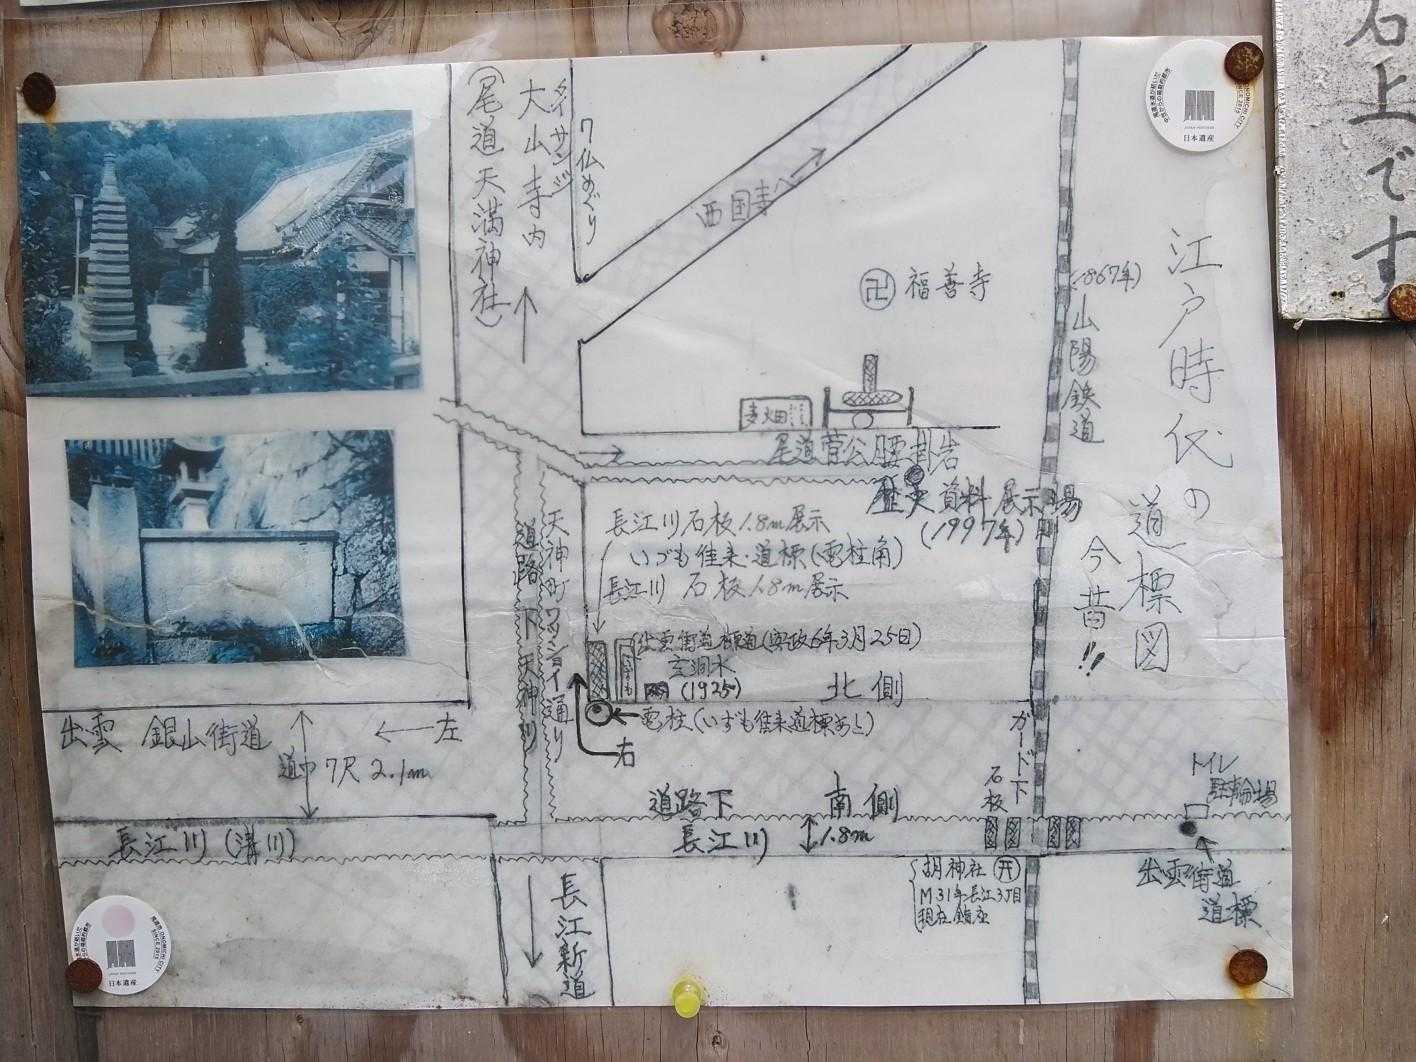 石上です
江戸時代の道標図
今昔!!
日本遺産
(1867年)
山陽鉄道
タイサンジ
大山寺内
(尾道天満神社)
7仏めぐり
西国寺へ
卍 福善寺
麦畑
尾道菅公腰掛岩
歴史資料展示場
(1997年)
長江川石板1.8m展示
いづも往来・道標(電柱角)
長江川 石板1.8m展示
天神町ワッショイ通り
道路下天神川
(1925)
北側
電柱(いずも往来道標あと)
右
出雲 銀山街道
←左
道巾7尺2.1m
道路下
南側
長江川(溝川)
長江川
1.8m
ガード下
石板
トイレ
駐輪場
出雲街道
道標
胡神社
M31年長江3丁目
現在鎮座
長江新道
日本遺産